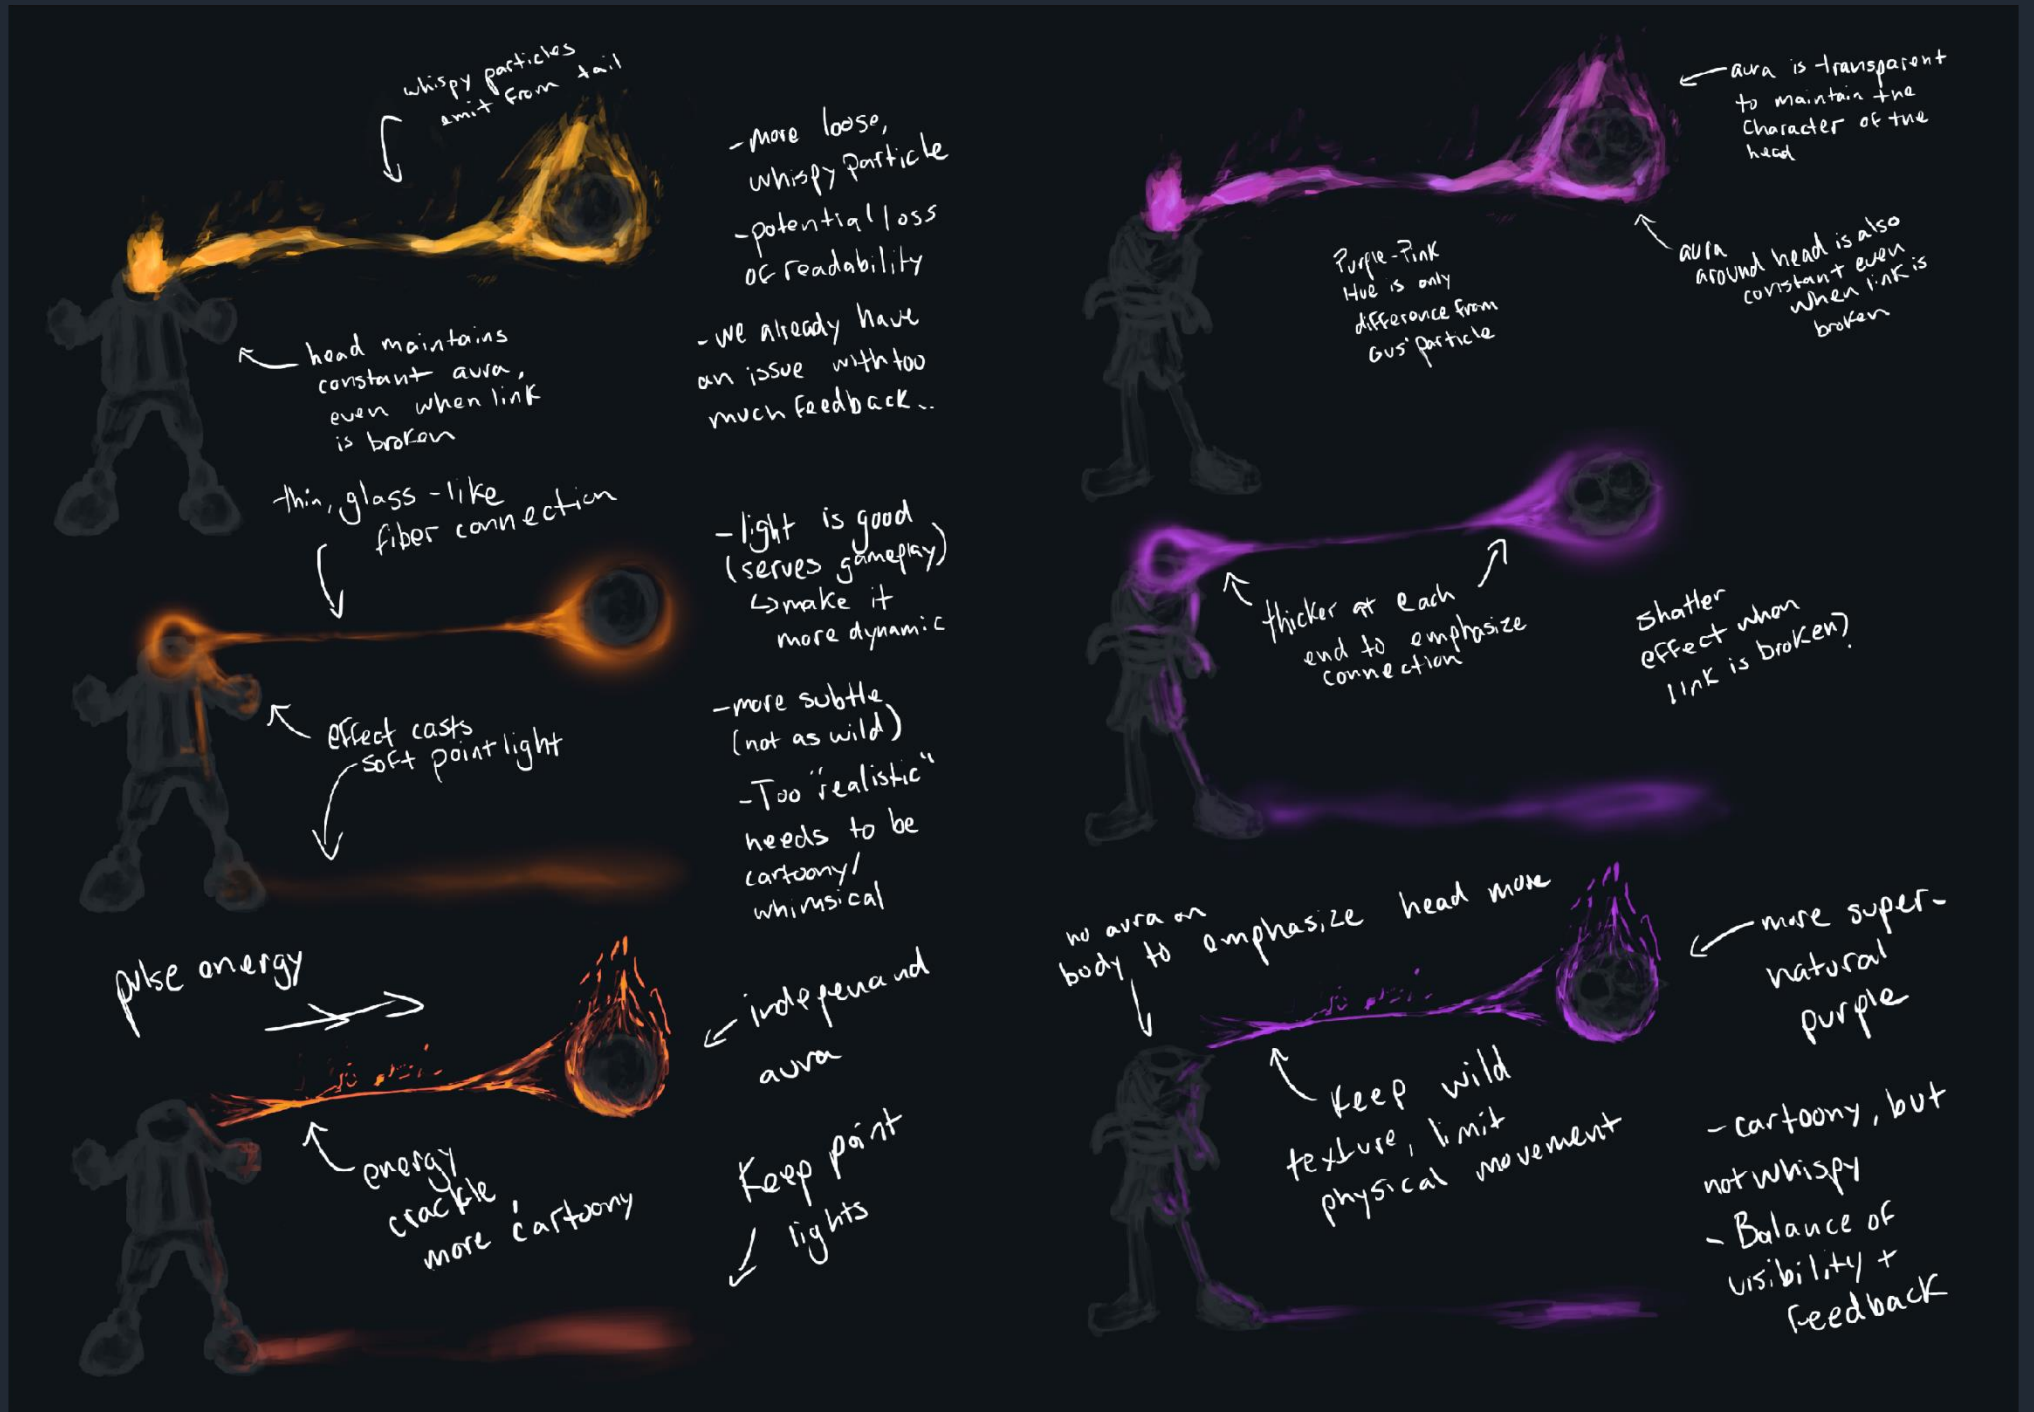 whispy particles
emit from tail
- more loose,
whispy particle
- potential loss
of readability
- we already have
an issue with too
much feedback..
head maintains
constant aura,
even when link
is broken
thin, glass-like
fiber connection
- light is good
(serves gameplay)
↳ make it
more dynamic
- more subtle
(not as wild)
- Too "realistic"
needs to be
cartoony/
whimsical
effect casts
soft point light
pulse energy
independand
aura
energy
crackle,
more cartoony
Keep point
lights
aura is transparent
to maintain the
character of the
head
aura
around head is also
constant even
when link is
broken
Purple-Pink
Hue is only
difference from
Gus' particle
thicker at each
end to emphasize
connection
shatter
effect when
link is broken?
no aura on
body to emphasize head more
more super-
natural
purple
Keep wild
texture, limit
physical movement
- cartoony, but
not whispy
- Balance of
visibility +
Feedback